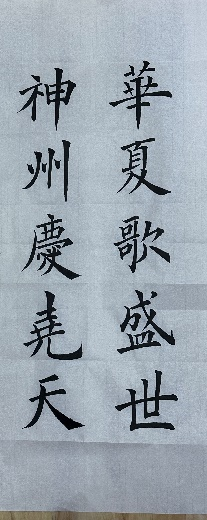 華夏歌盛世
神州慶堯天